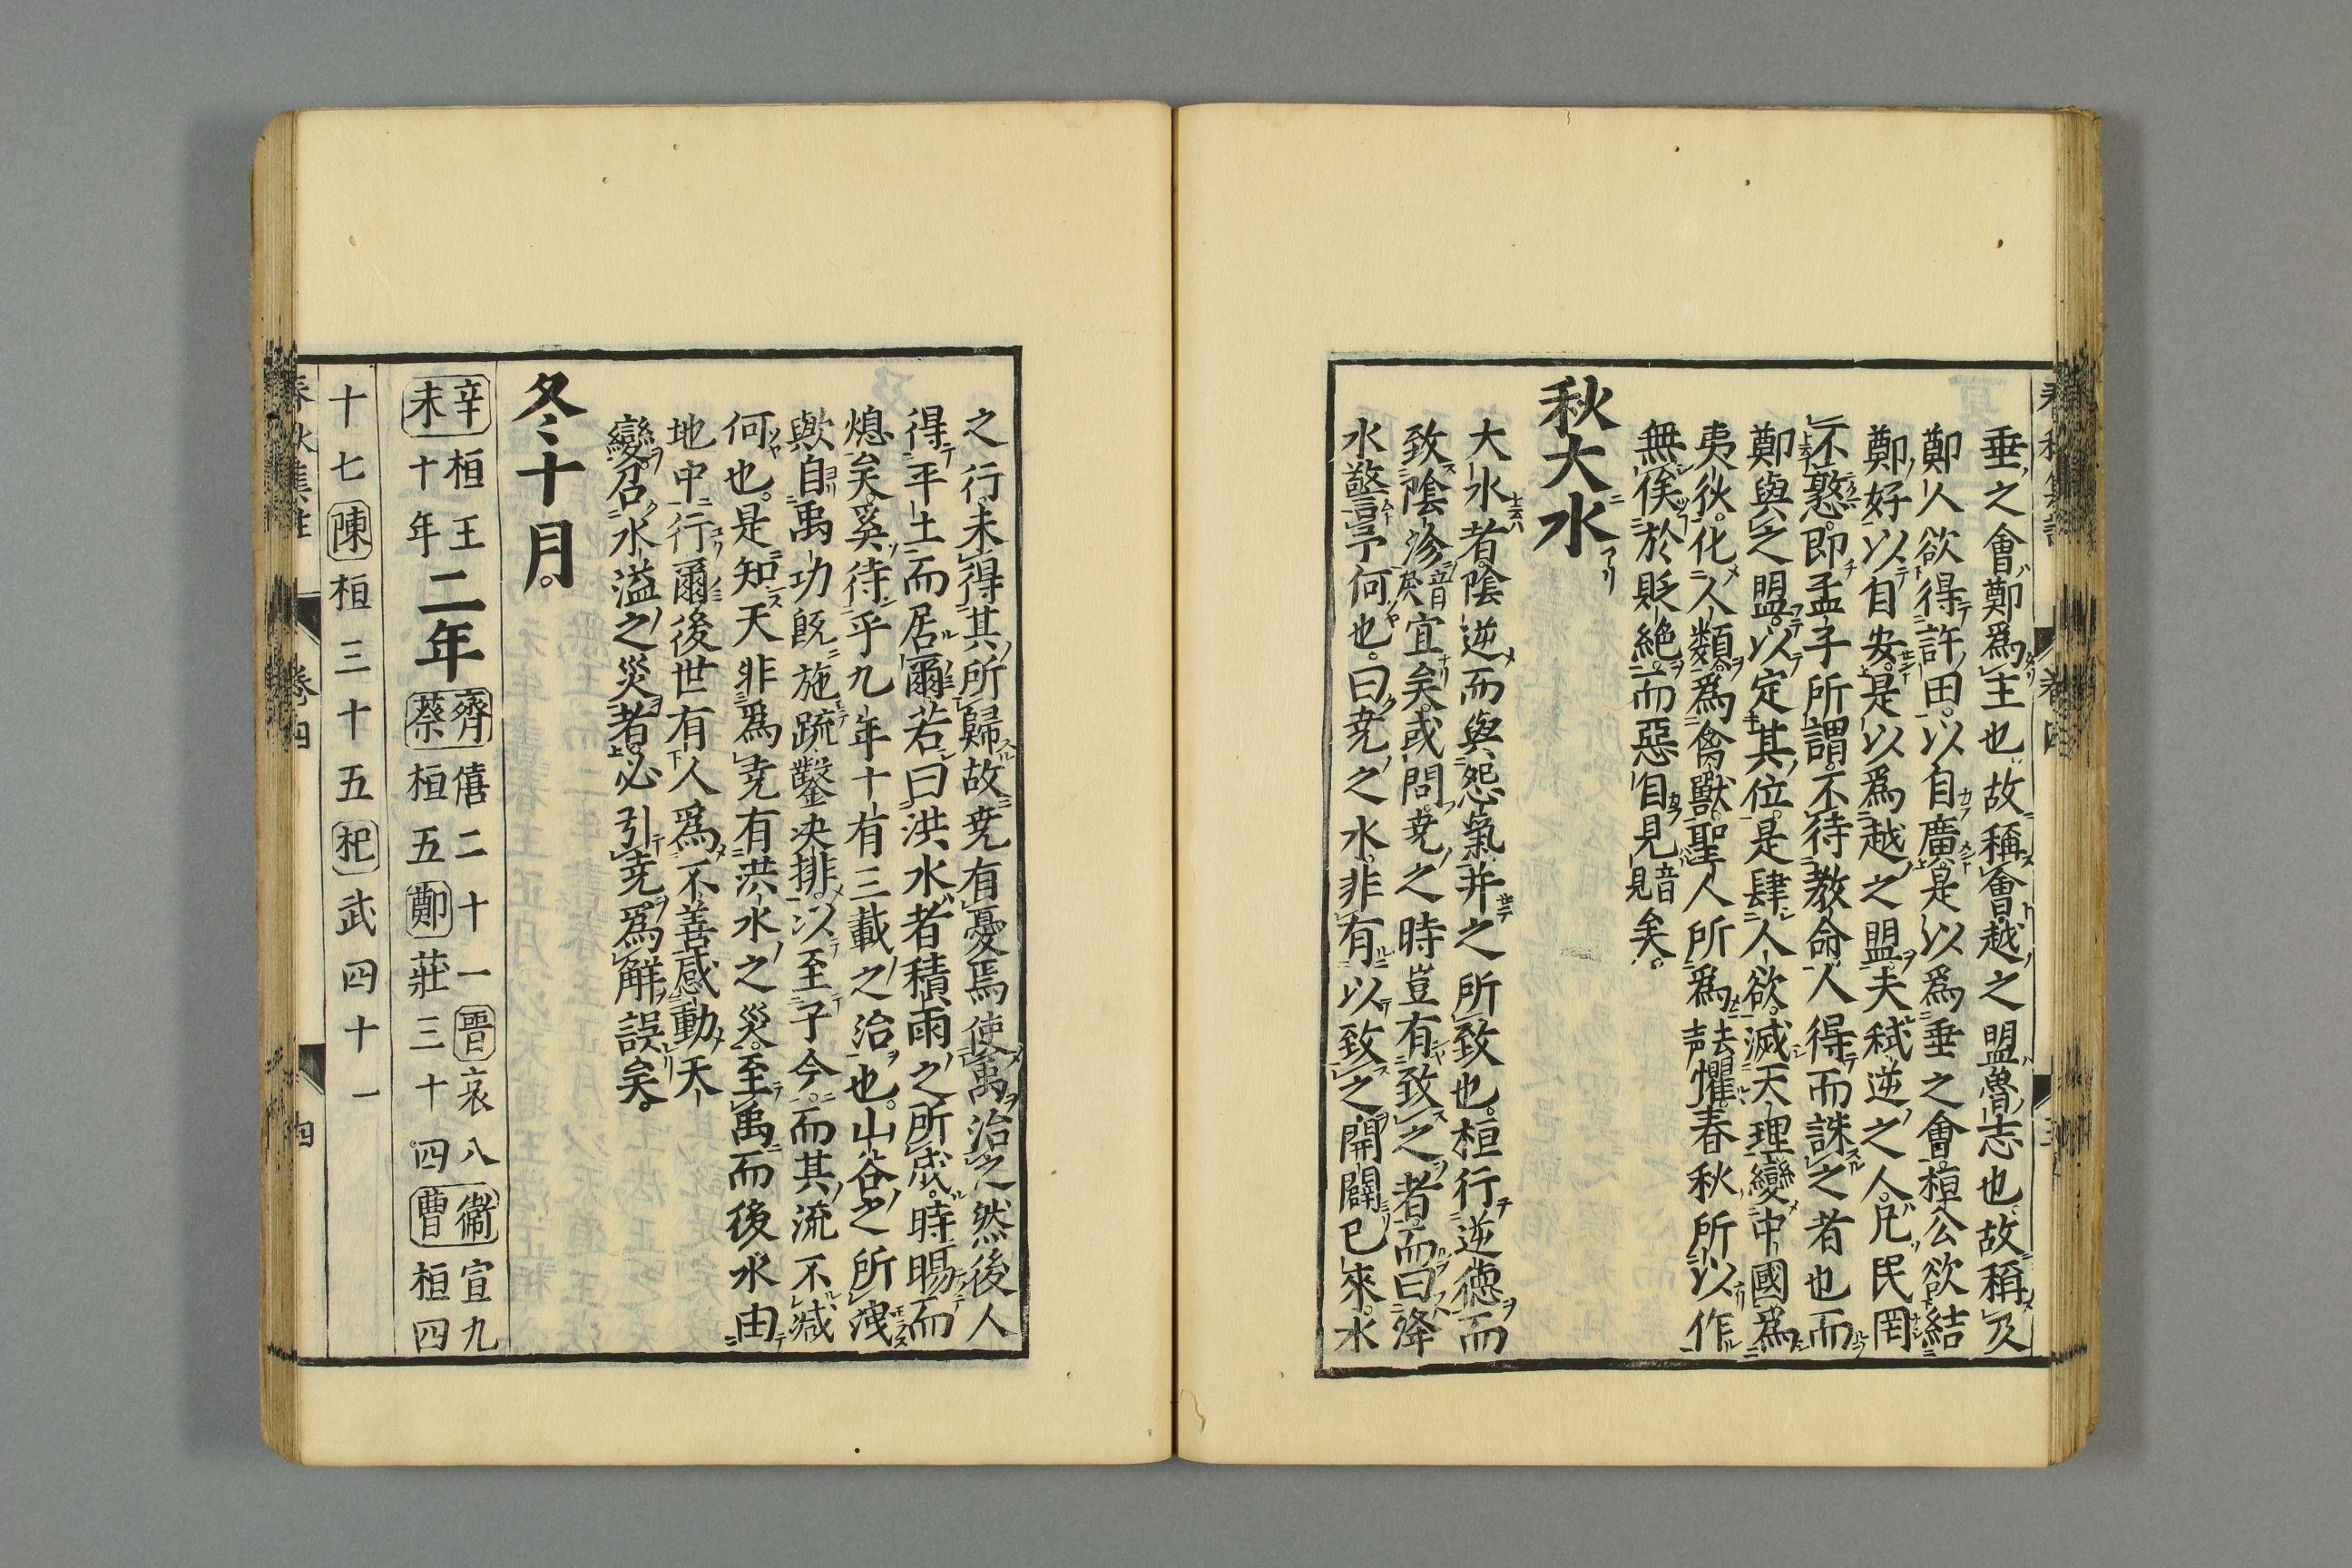 垂之會鄭爲主也故稱會越之盟魯志也故稱及
鄭人欲得許田以自廣是以爲垂之會桓公欲結
鄭好以自安是以爲越之盟夫弑逆之人凡民罔
不憝即孟子所謂不待教命人得而誅之者也而
鄭與之盟以定其位是肆人欲滅天理變中國爲
夷狄化人類爲禽獸聖人所爲懼春秋所以作
無俟於貶絶而惡自見音見矣
秋大水
大水者陰逆而與怨氣并之所致也桓行逆德而
致陰沴音戾宜矣或問堯之時豈有致之者而曰洚
水警予何也曰堯之水非有以致之開闢已來水
之行未得其所歸故堯有憂焉使禹治之然後人
得平土而居爾若曰洪水者積雨之所成時暘而
熄矣奚待乎九年十有三載之治也山谷之所洩
歟自禹功既施疏鑿決排以至于今而其流不減
何也是知天非爲堯有洪水之災至禹而後水由
地中行爾後世有人爲不善感動天
變召水溢之災者必引堯爲解誤矣
冬十月
辛未桓王十年二年齊僖二十一晉哀八衞宣九蔡桓五鄭莊三十四曹桓四
十七陳桓三十五杞武四十一
春秋集註 卷四 四